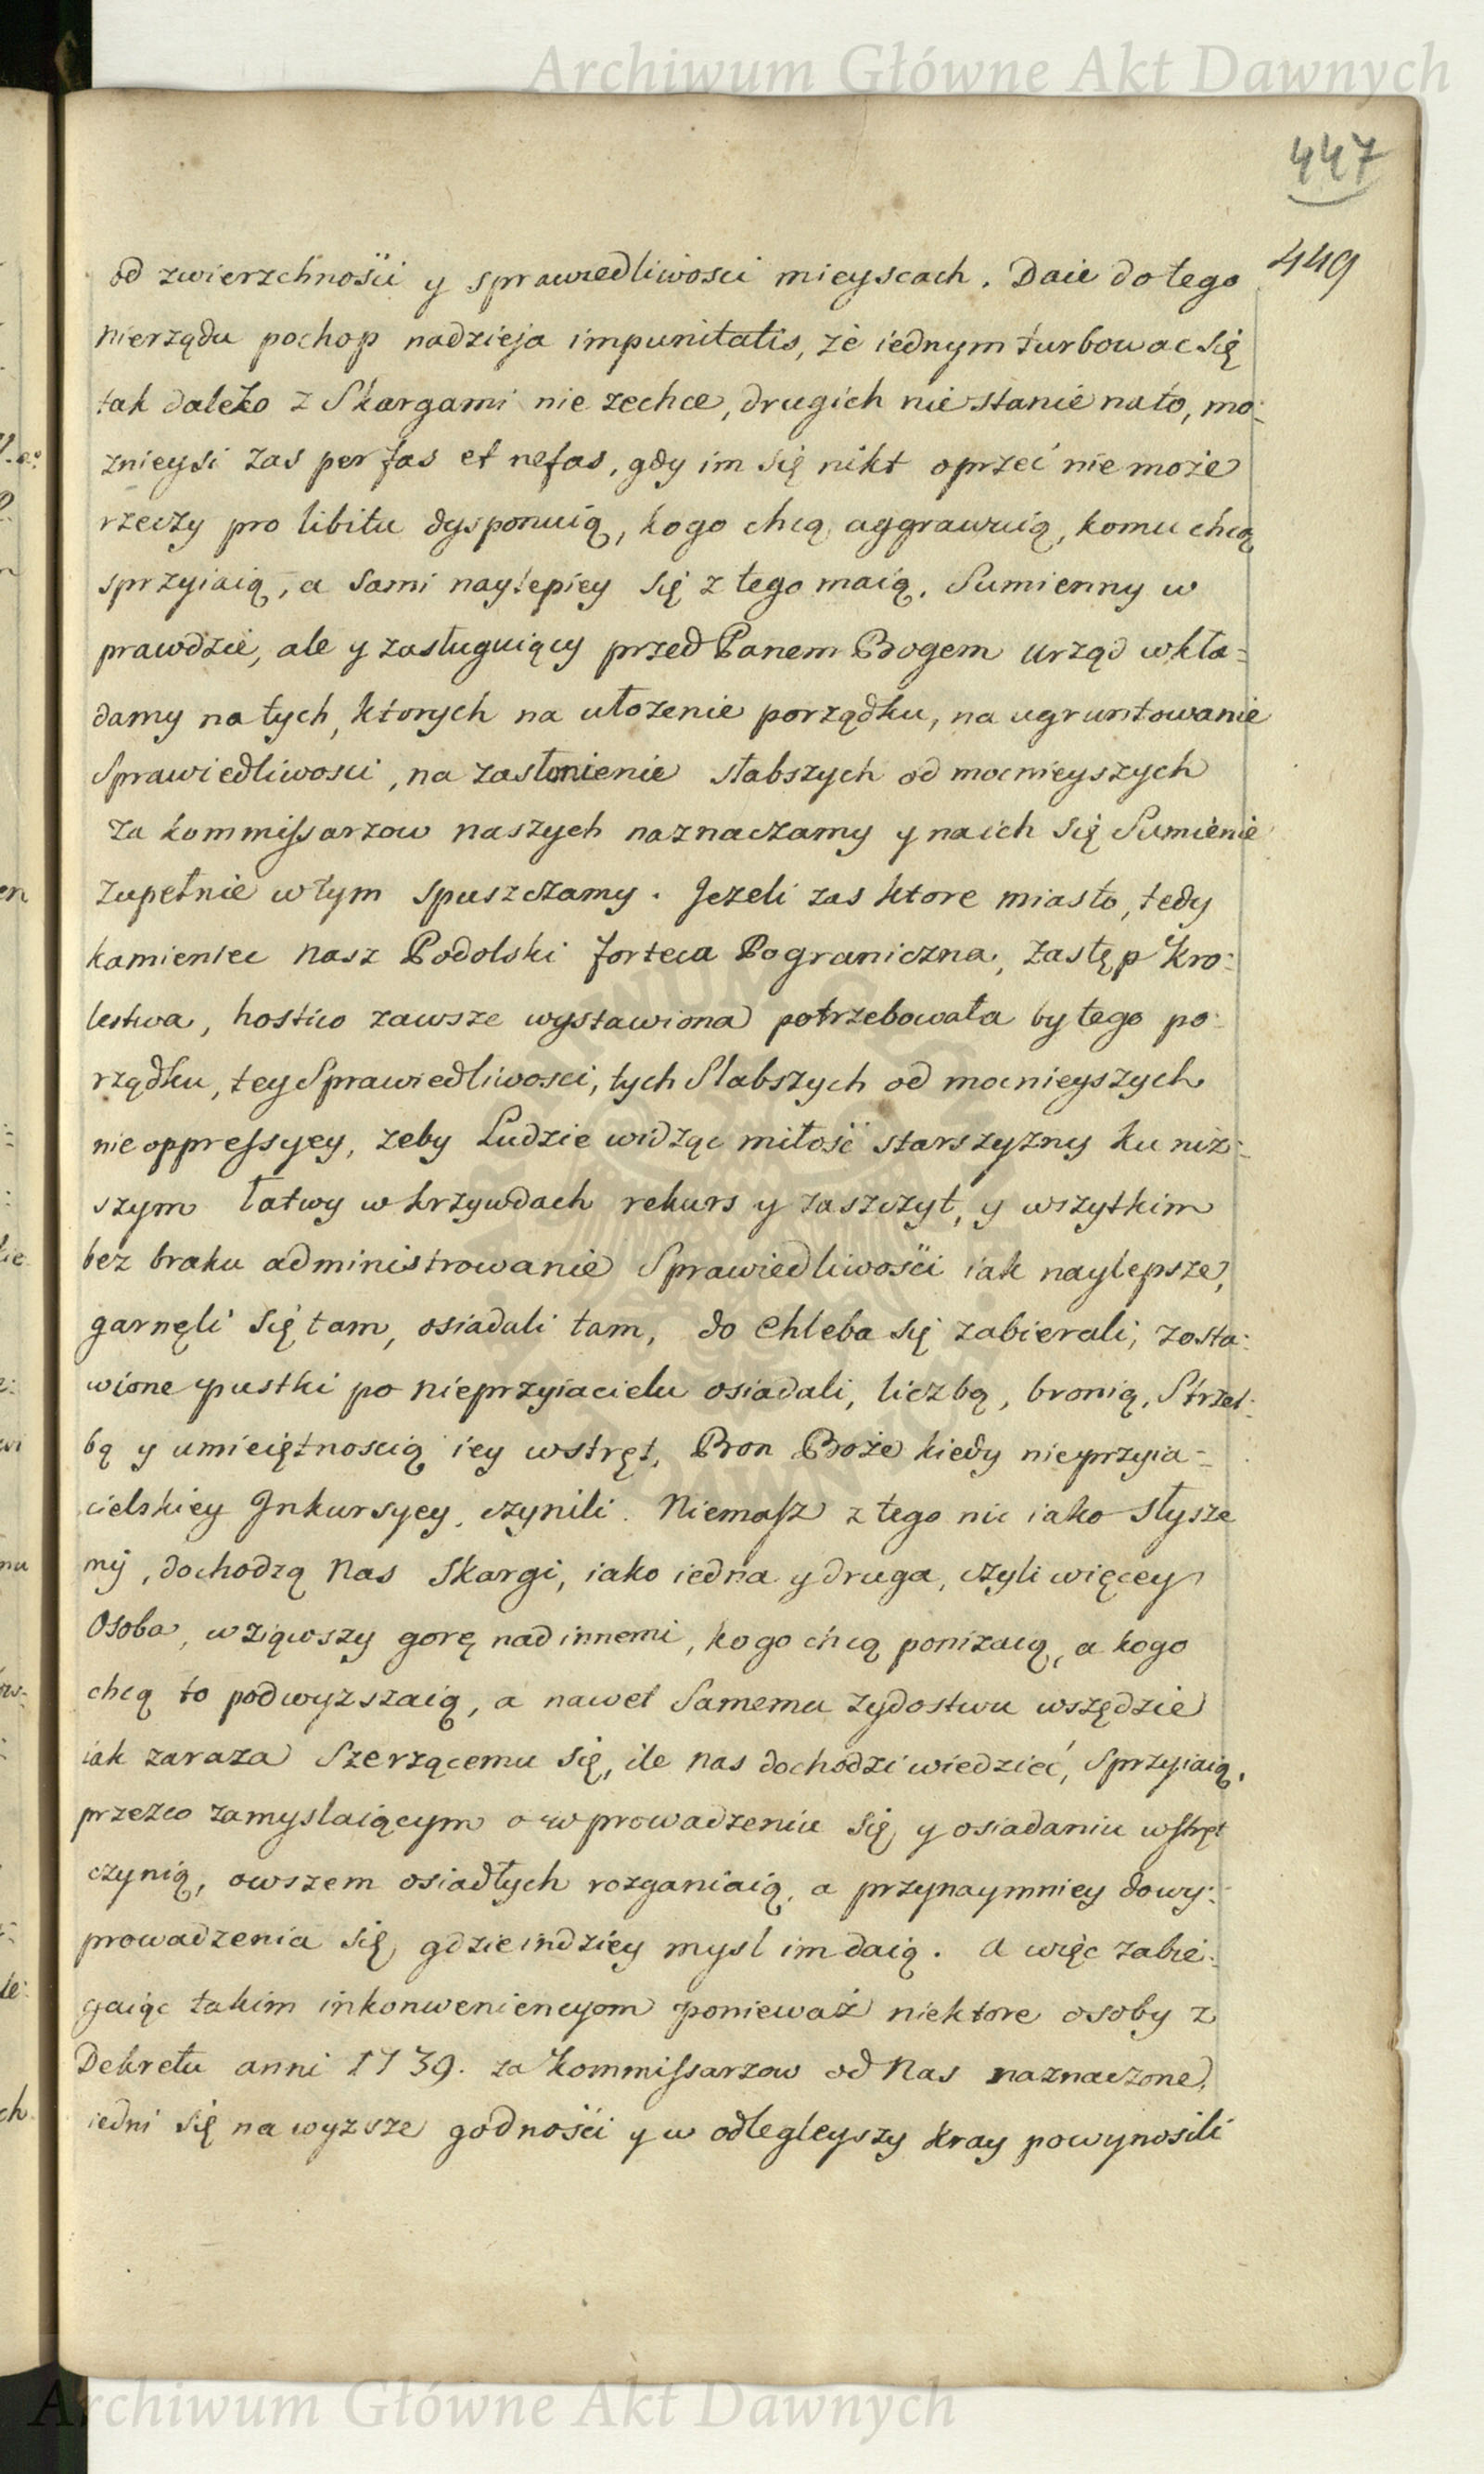 Archiwum Główne Akt Dawnych
447
449
od zwierzchnosci y sprawiedliwosci mieyscach. Daie do tego
nierządu pochop nadzieja impunitatis, że iednym turbowac się
tak daleko z Skargami nie zechce, drugich nie stanie na to, mo:
znieysi zas per fas et nefas, gdy im się nikt oprzeć nie może
rzeczy pro libitu dysponuią, kogo chcą aggrawuią, komu chcą
sprzyiaią, a sami naylepiey się z tego maią. Sumienny w
prawdzie, ale y zasługuiący przed Panem Bogem urząd wkła=
damy na tych, ktorych na ułozenie porządku, na ugruntowanie
Sprawiedliwosci, na zasłonienie słabszych od mocnieyszych
za kommissarzow naszych naznaczamy y na ich się Sumienie
zupełnie w tym spuszczamy. Jezeli zas ktore miasto, tedy
kamieniec nasz Podolski forteca Pograniczna, zastęp Kro:
lestwa, hostico zawsze wystawiona potrzebowała by tego po:
rządku, tey Sprawiedliwosci, tych Słabszych od mocnieyszych
nie oppressyey, zeby Ludzie widząc miłość starszyzny ku niż:
szym łatwy w krzywdach rekurs y zaszczyt, y wszytkim
bez braku administrowanie Sprawiedliwości iak naylepsze,
garnęli się tam, osiadali tam, do Chleba się zabierali, zosta:
wione pustki po nieprzyiacielu osiadali, liczbą, bronią, Strzel:
bą y umieiętnoscią iey wstręt, Bron Boże kiedy nieprzyia=
cielskiey Inkursyey, czynili. Niemasz z tego nic iako słysze
my, dochodzą Nas Skargi, iako iedna y druga, czyli więcey
Osoba, wziąwszy gorę nad innemi, kogo chcą ponizaią, a kogo
chcą to podwyzszaią, a nawet Samemu żydostwu wszędzie
iak zaraza Szerzącemu się, ile nas dochodzi wiedzieć, sprzyiaią,
przezco zamyslaiącym o wprowadzeniu się y osiadaniu wstręt
czynią, owszem osiadłych rozganiaią, a przynaymniey do wy:
prowadzenia się, gdzie indziey mysl im daią. A więc zabie:
gaiąc takim inkonweniencyom ponieważ niektore osoby z
Dekretu anni 1739. za Kommissarzow od Nas naznaczone,
iedni się na wyzsze godności y w odległeyszy kray powynosili
Archiwum Główne Akt Dawnych